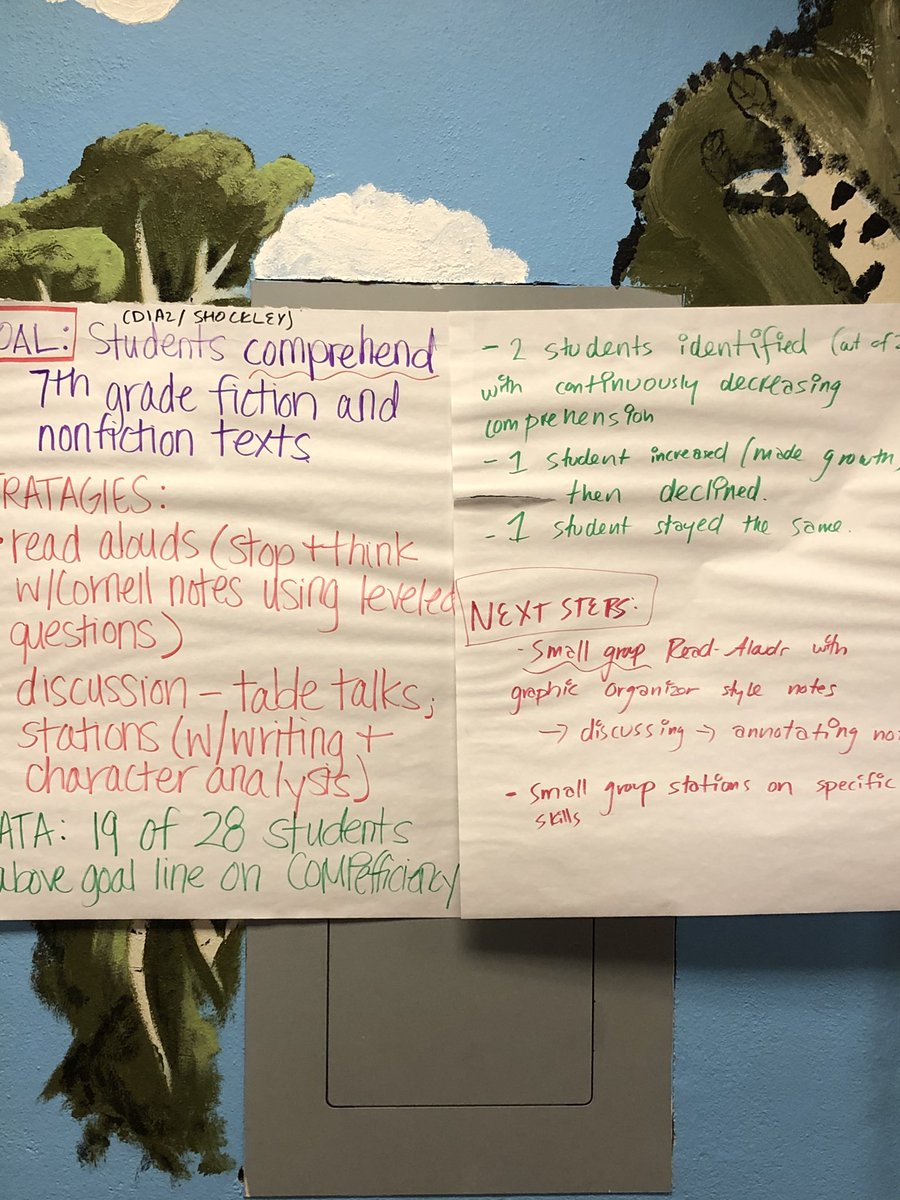 (DIAZ/ SHOCKLEY)
OAL: Students comprehend
7th grade fiction and
nonfiction texts
TRATAGIES:
• read alouds (stop + think
w/cornell notes using leveled
questions)
discussion – table talks;
stations (w/writing +
character analysts)
ATA: 19 of 28 students
above goal line on COMPefficiency
- 2 students identified (out of 2
with continuously decreasing
comprehension
- 1 student increased (made growth)
then declined.
- 1 student stayed the same.
NEXT STEPS:
- Small group Read-Alouds with
graphic organizor style notes
→ discussing → annotating no
- Small group stations on specific
skills